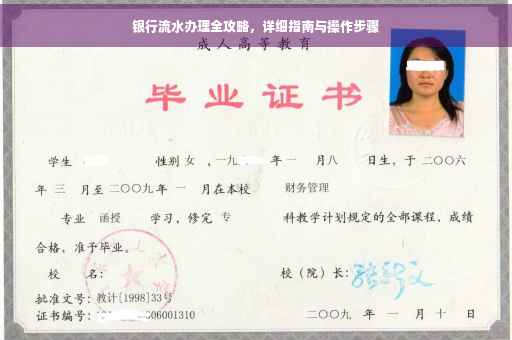 银行流水办理全攻略，详细指南与操作步骤
成人高等教育
毕业证书
学生 性别 女 ，一九 年 一 月 八 日生，于 二〇〇六
年 三 月至 二〇〇九 年 一 月在本校 财务管理
专业 函授 学习，修完 专 科教学计划规定的全部课程，成绩
合格，准予毕业。
校 名： 校（院）长：
批准文号：教计[1998]33号
证书编号： 06001310 二〇〇九 年 一 月 十 日